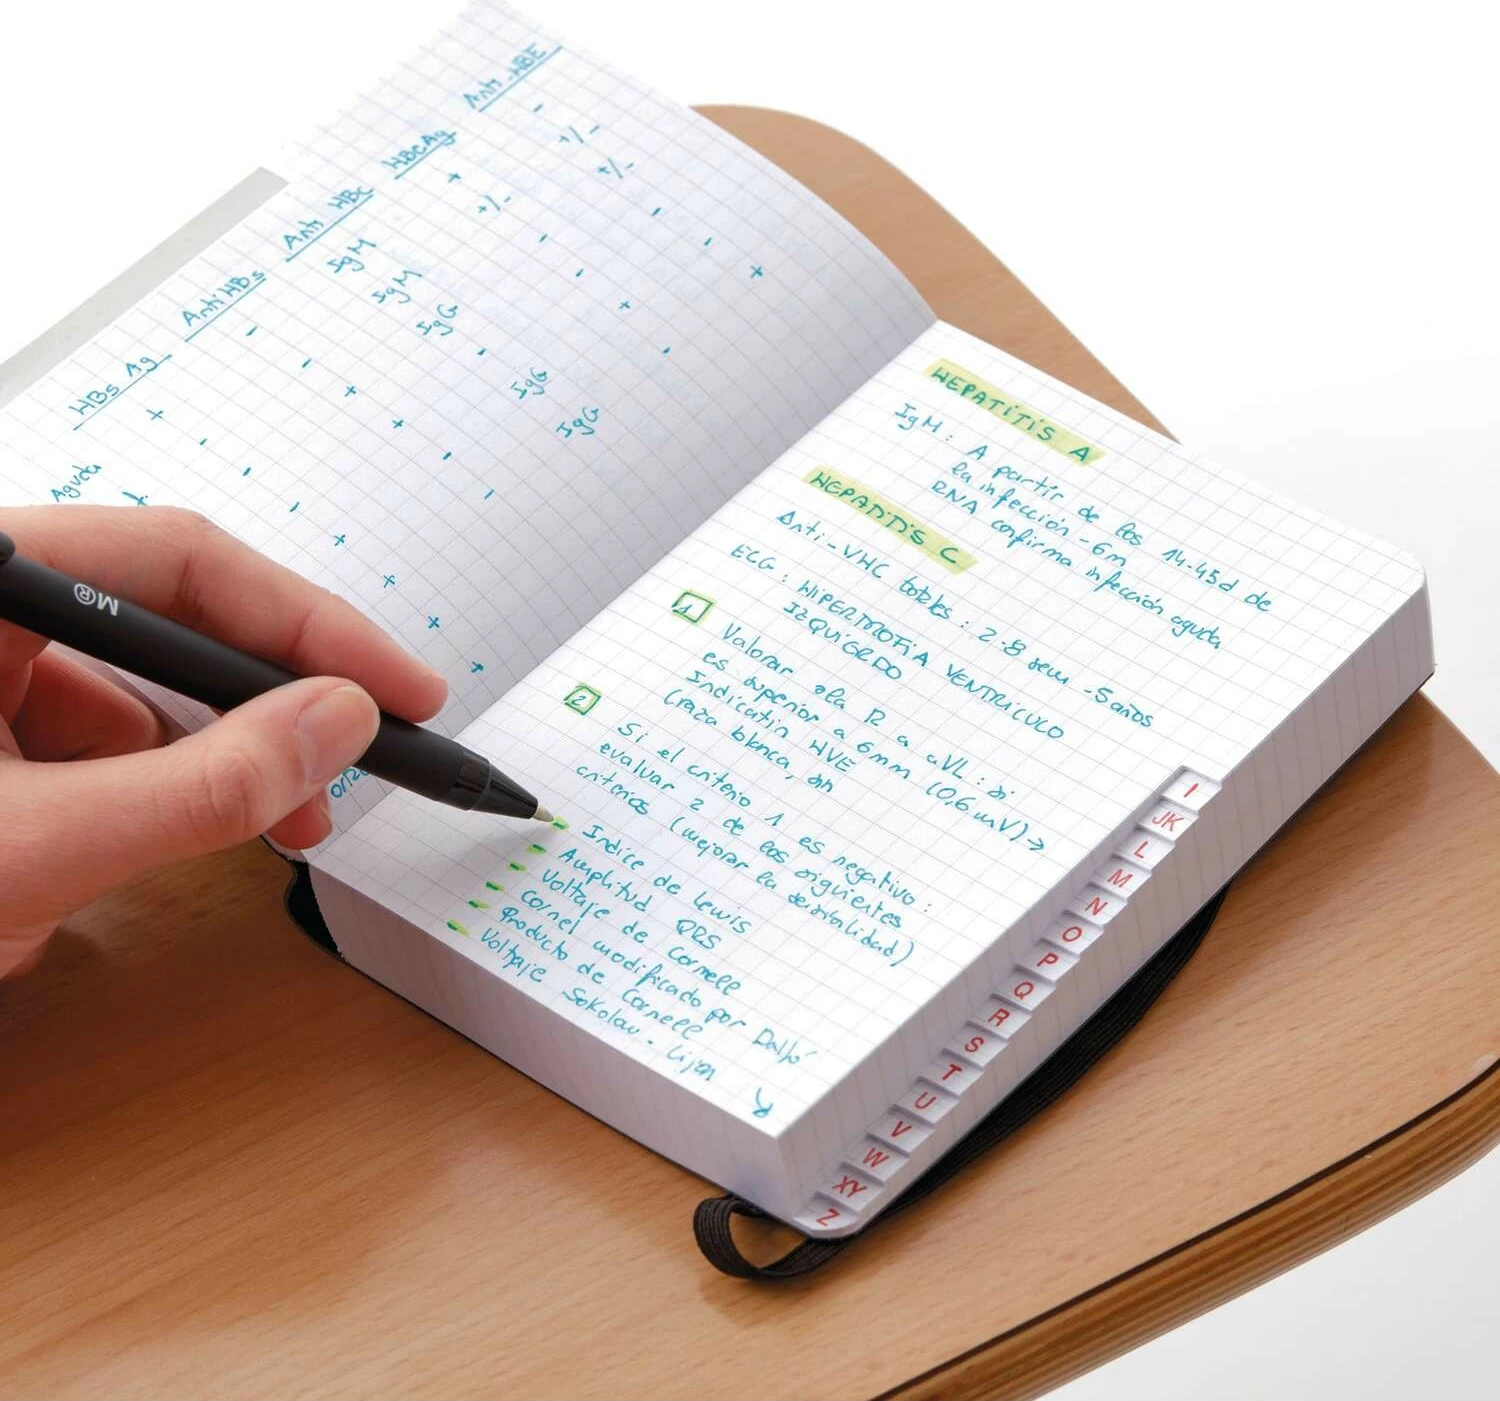 HBs Ag Anti HBs Anti HBc HBcAg Anti-HBE
Aguda + - IgM + -
- - IgM +/- +/-
- + IgG - +/-
- + - - -
+ - IgG + -
+ - IgG - +
+
+
HEPATITIS A
IgM: A partir de los 14-45d de
la infección - 6m
RNA confirma infección aguda
HEPATITIS C
Anti-VHC totales: 2-8 sem - 5 años
ECG: HIPERTROFIA VENTRICULO
IZQUIERDO
1 Valorar la R a aVL: si
es superior a 6mm (0,6 mV) →
Indicatin HVE
(raza blanca,
2 Si el criterio 1 es negativo:
evaluar 2 de los siguientes
criterios (mejorar la sensibilidad)
- Indice de Lewis
- Amplitud QRS
- Voltaje de Cornell
- Cornel modificado por Dalfó
- Producto de Cornell
- Voltaje Sokolow - Lijon
I
JK
L
M
N
O
P
Q
R
S
T
U
V
W
XY
Z
M®